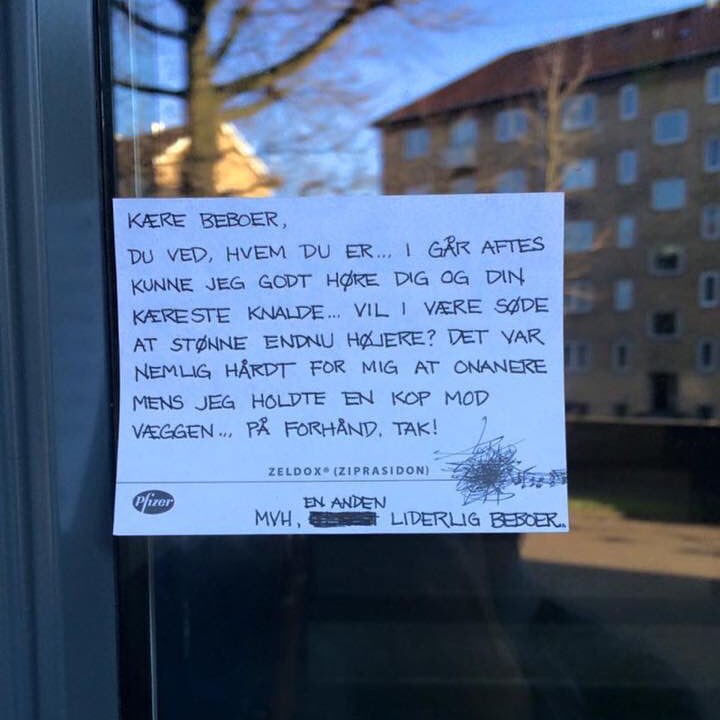 KÆRE BEBOER,
DU VED, HVEM DU ER... I GÅR AFTES
KUNNE JEG GODT HØRE DIG OG DIN
KÆRESTE KNALDE... VIL I VÆRE SØDE
AT STØNNE ENDNU HØJERE? DET VAR
NEMLIG HÅRDT FOR MIG AT ONANERE
MENS JEG HOLDTE EN KOP MOD
VÆGGEN... PÅ FORHÅND, TAK!
ZELDOX® (ZIPRASIDON)
Pfizer
EN ANDEN
MVH, LIDERLIG BEBOER..